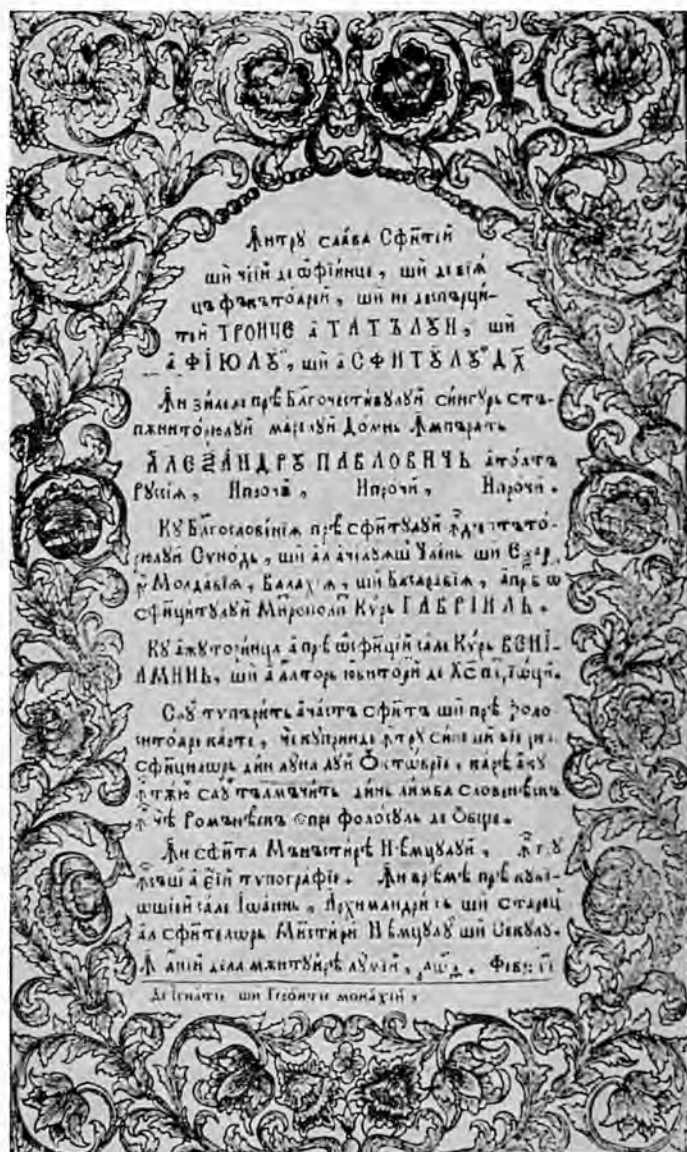 Ꙟтрꙋ слава Сфинтей
ши чей деѡфїинце, ши девїѧ
цъ фъкътоарей, ши не деспърци-
тей ТРОИЦЕ а ТАТЪЛꙋИ, ши
а ФІЮЛꙋ, ши а СФИТꙋЛꙋ ДХ
Ꙟ зилеле прѣ Благочестивꙋлꙋй сингꙋрь стъ-
пѫниторюлꙋй марелꙋй Домнь Ꙟмпърать
АЛЕѮАНДРꙋ ПАВЛОВИЧЬ атоатъ
Рꙋссїѧ, Ипрочаѧ, Ипрочи, Ипрочи.
Кꙋ Благословенїѧ прѣ сфинтꙋлꙋй
Сѵнодь, ши ал ачелꙋѧш члень ши Еѯар
Молдавїѧ, Валахїѧ, ши Басаравїѧ, а прѣ ѡ
сфинцитꙋлꙋй Кѵрь ГАВРІИЛЬ.
Кꙋ ажꙋторинца а прѣ ѡсфинцїей сале Кѵрь ВЕНІ-
АМИНЬ, ши а алторь юбиторй де
Саꙋ типърить ачастъ сфѫнтъ ши прѣ фоло-
ситоаре карте, че кꙋпринде
сфинцилѡрь дин лꙋна лꙋй Ѻктѡврїе, карѣ акꙋ
ꙟтѫю саꙋ тълмъчить динь лимба словенѣскъ
ꙟ чѣ Ромънѣскъ спре фолосꙋль де Ѻбще.
Ꙟ сфѫнта Мънъстирѣ Нѣмцꙋлꙋй,
а ей типографїе. Ꙟ врѣмѣ прѣ кꙋвї-
ѡшїей сале Іѡаннь, Архимандрить ши старець
ал сфинтелѡрь Мънъстирй Нѣмцꙋлꙋ ши Секꙋлꙋ.
Ꙟ аний дела мѫнтꙋирѣ лꙋмїй, ҂аѡ. Февр:
Де Игнатїе ши Герѡнтїе монахїй.